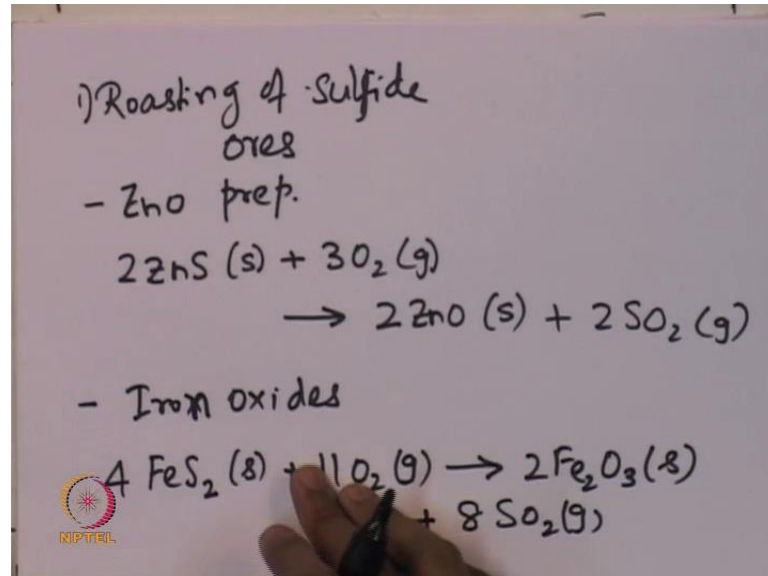 1) Roasting of Sulfide
ores
- ZnO prep.
2 ZnS (s) + 3 O₂ (g)
→ 2 ZnO (s) + 2 SO₂ (g)
- Iron oxides
4 FeS₂ (s) + 11 O₂ (g) → 2 Fe₂O₃ (s)
+ 8 SO₂ (g)
NPTEL